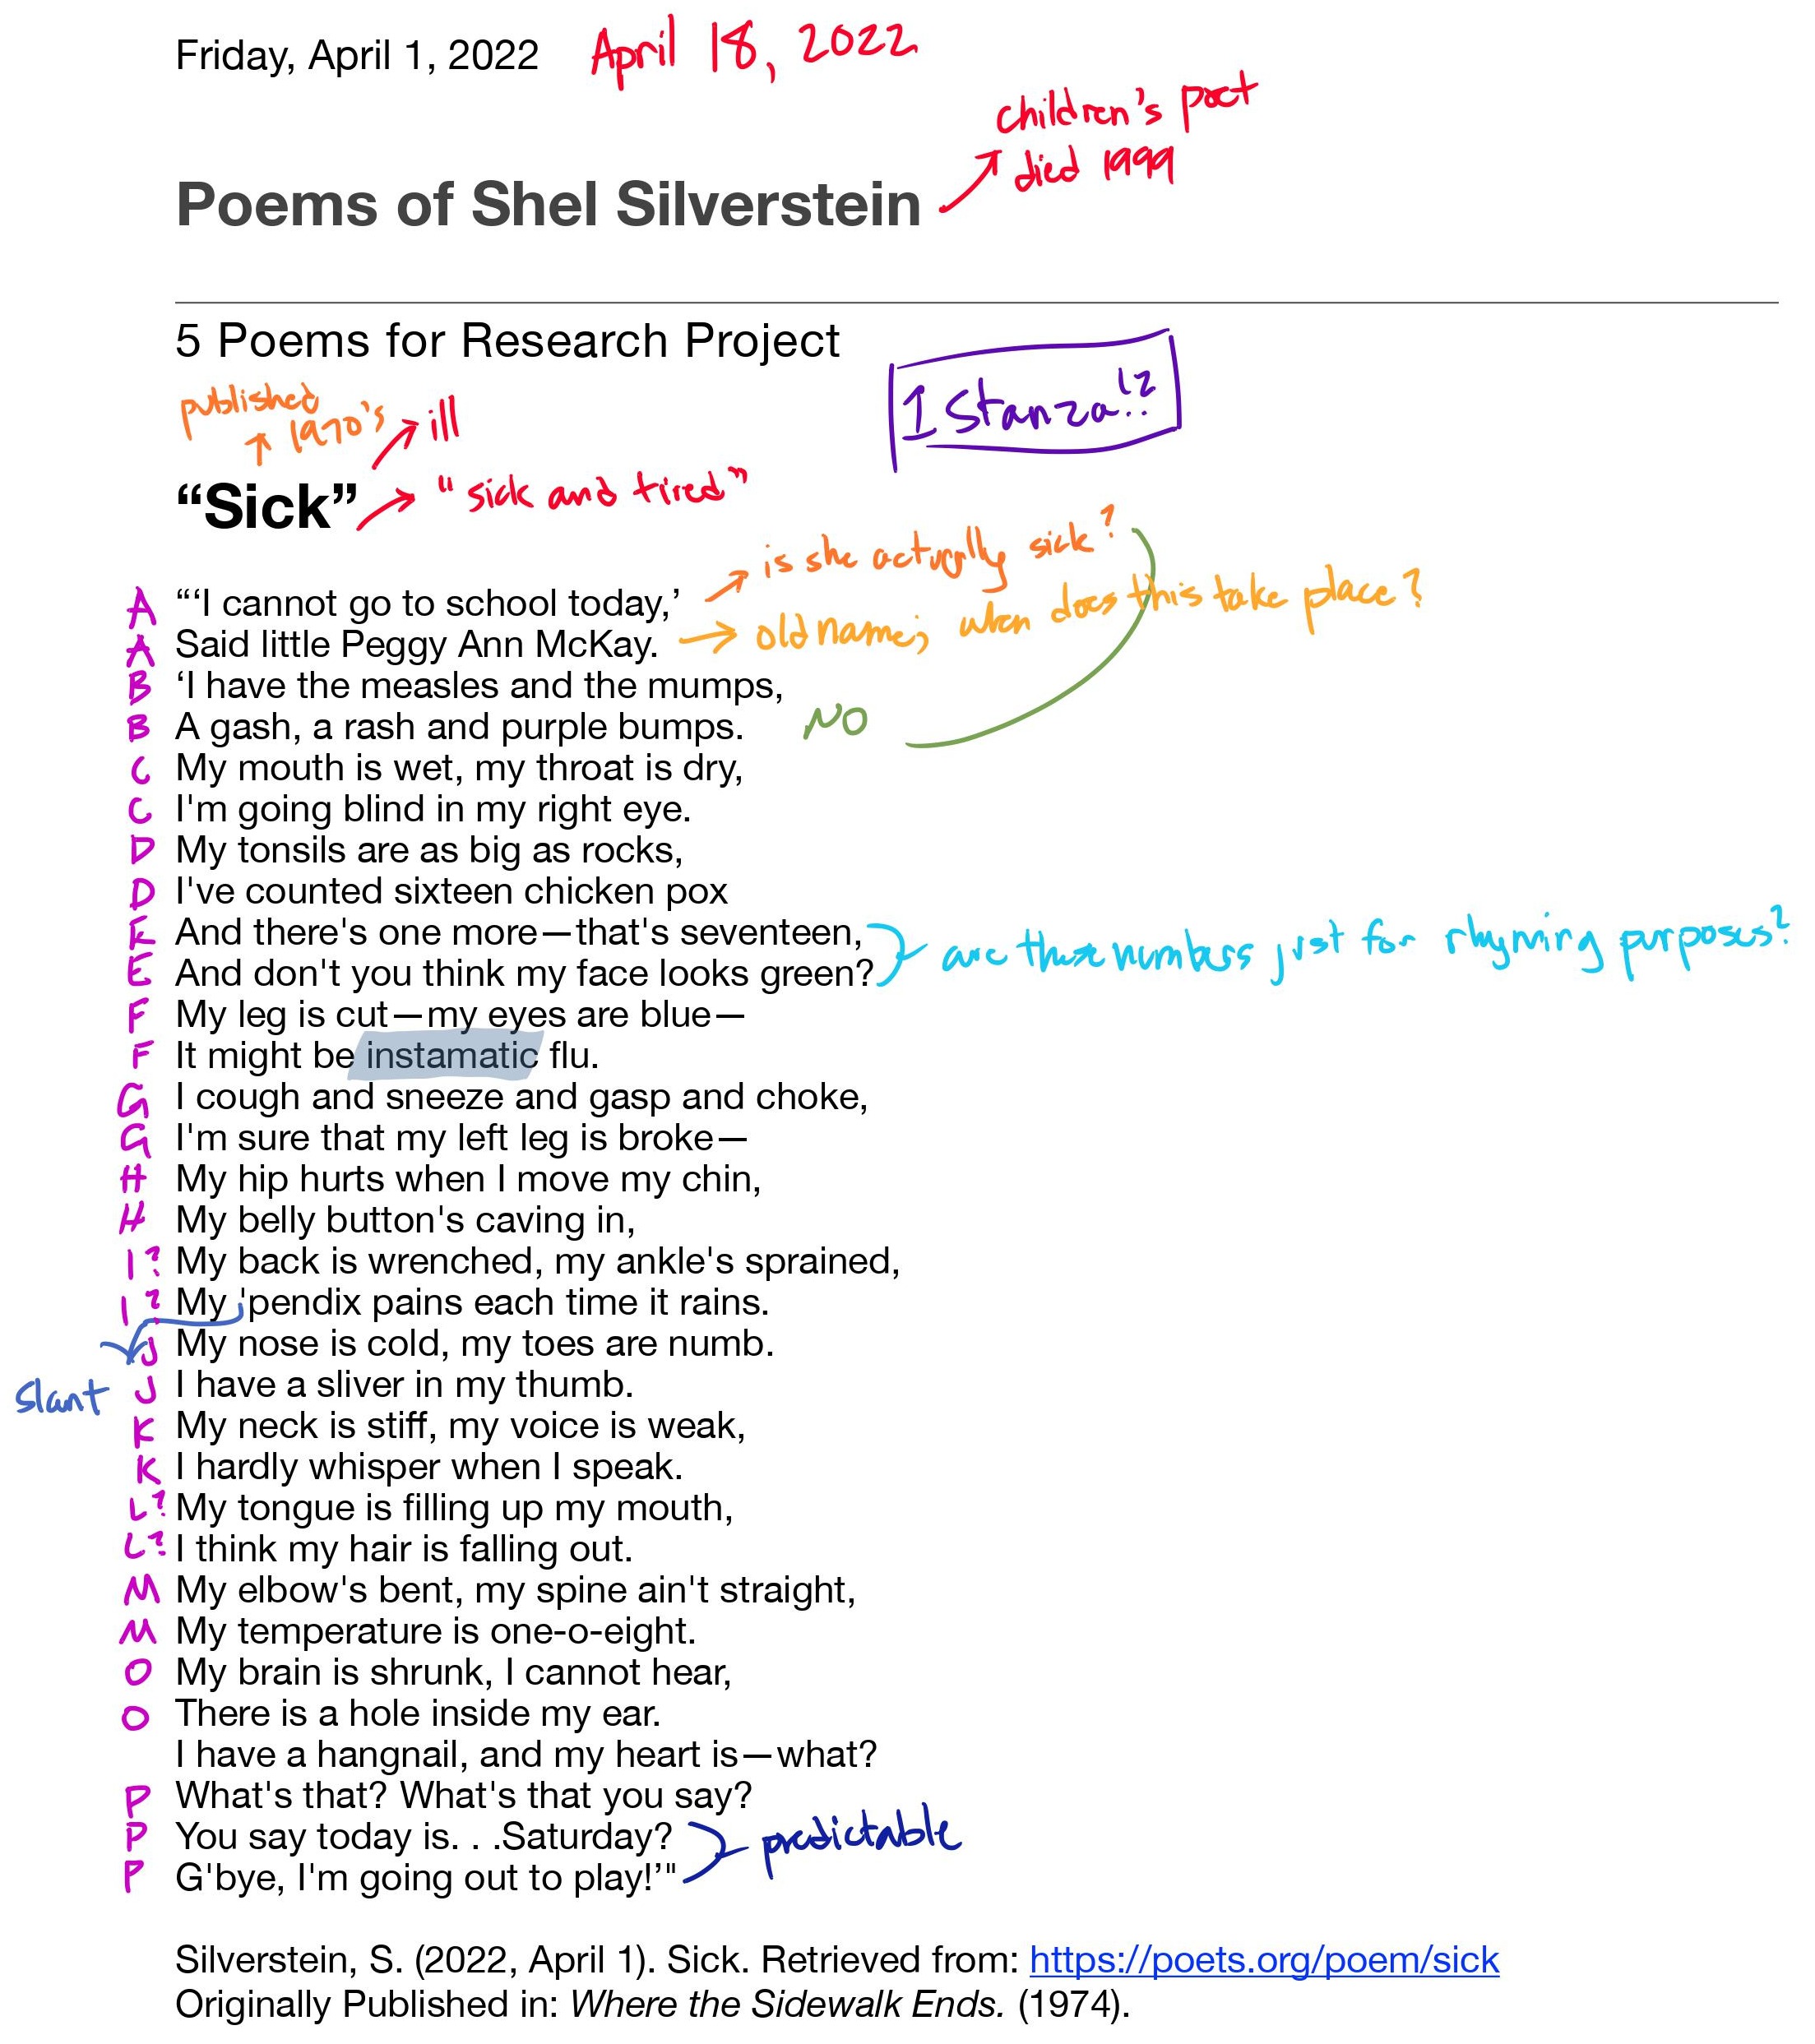 Friday, April 1, 2022 April 18, 2022
children's poet
died 1999
Poems of Shel Silverstein
5 Poems for Research Project
1 Stanza!?
published
1970's
ill
“Sick”
"sick and tired"
is she actually sick?
A “‘I cannot go to school today,’
A Said little Peggy Ann McKay.
old name; when does this take place?
B ‘I have the measles and the mumps,
B A gash, a rash and purple bumps.
NO
C My mouth is wet, my throat is dry,
C I'm going blind in my right eye.
D My tonsils are as big as rocks,
D I've counted sixteen chicken pox
E And there's one more—that's seventeen,
are these numbers just for rhyming purposes?
E And don't you think my face looks green?
F My leg is cut—my eyes are blue—
F It might be instamatic flu.
G I cough and sneeze and gasp and choke,
G I'm sure that my left leg is broke—
H My hip hurts when I move my chin,
H My belly button's caving in,
I? My back is wrenched, my ankle's sprained,
I? My 'pendix pains each time it rains.
J My nose is cold, my toes are numb.
slant
J I have a sliver in my thumb.
K My neck is stiff, my voice is weak,
K I hardly whisper when I speak.
L? My tongue is filling up my mouth,
L? I think my hair is falling out.
M My elbow's bent, my spine ain't straight,
M My temperature is one-o-eight.
O My brain is shrunk, I cannot hear,
O There is a hole inside my ear.
I have a hangnail, and my heart is—what?
P What's that? What's that you say?
P You say today is. . .Saturday?
predictable
P G'bye, I'm going out to play!’"
Silverstein, S. (2022, April 1). Sick. Retrieved from: https://poets.org/poem/sick
Originally Published in: Where the Sidewalk Ends. (1974).